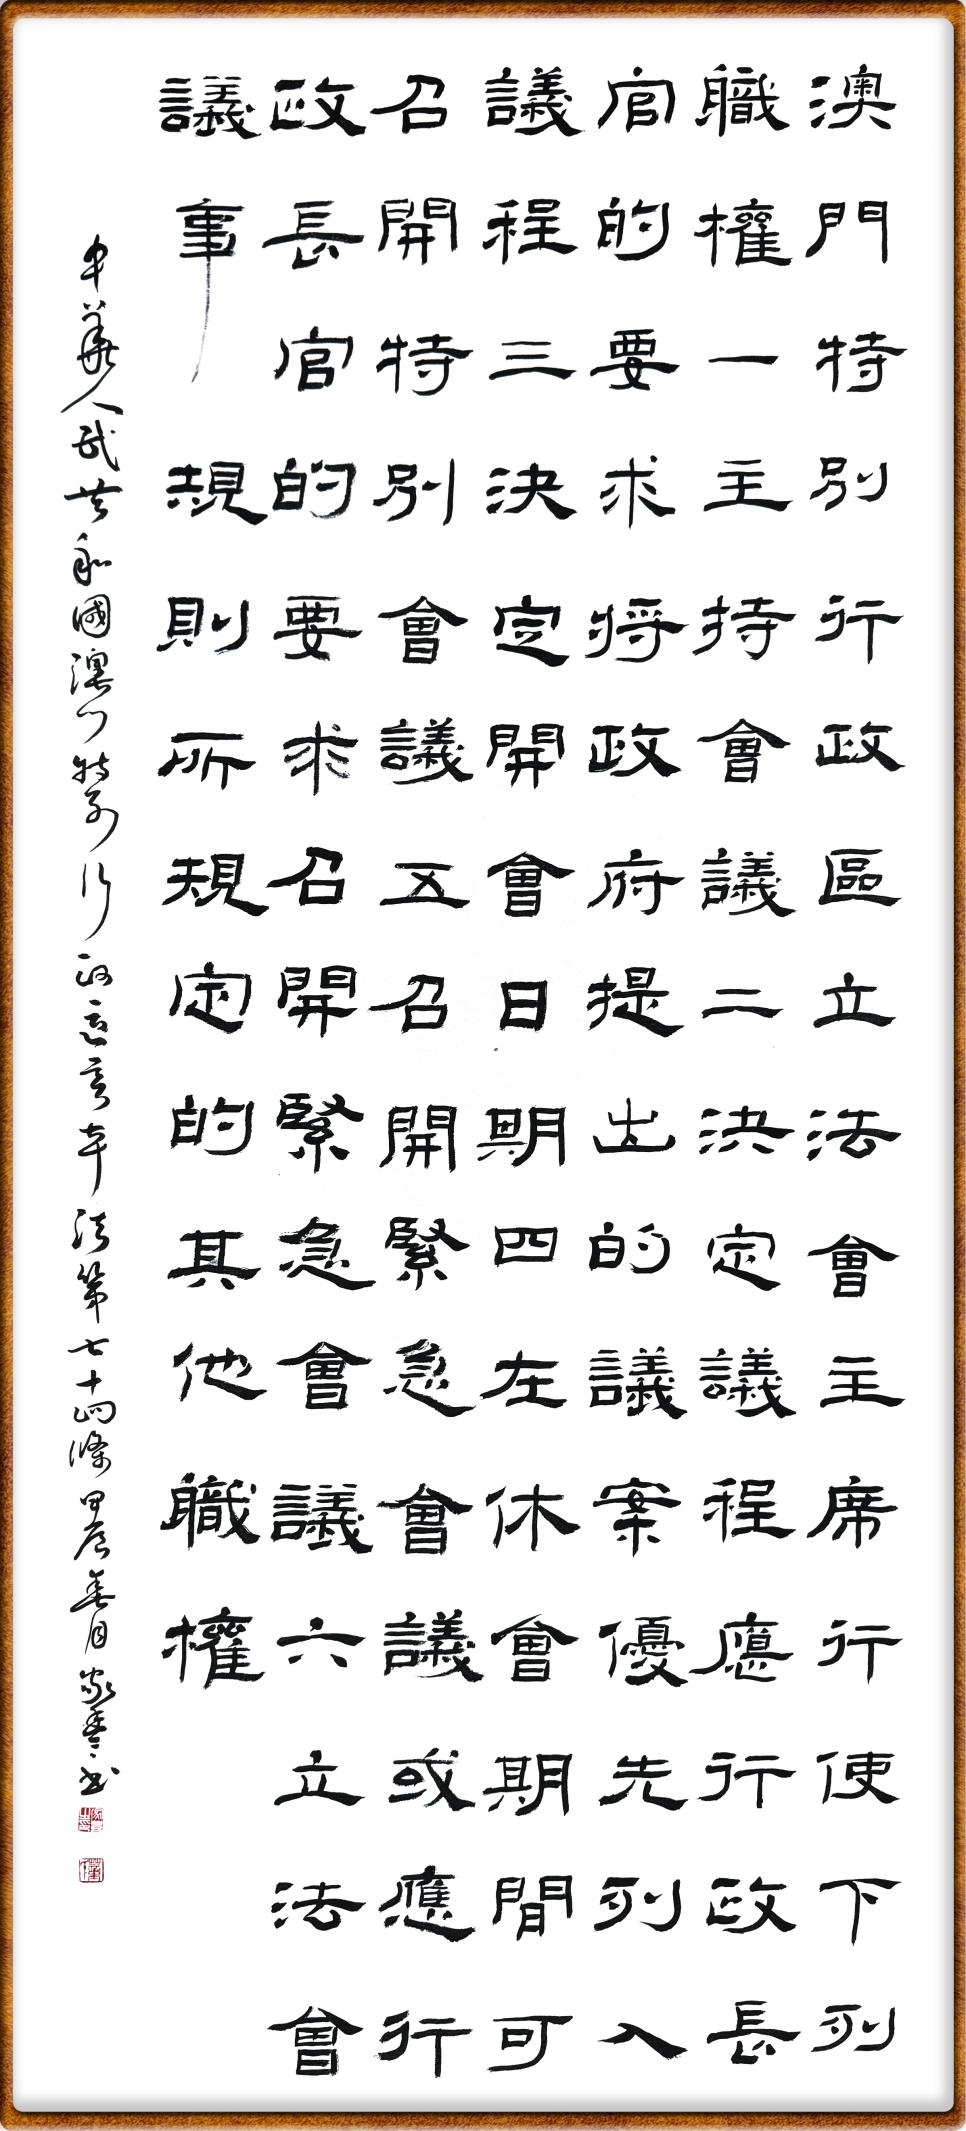 澳門特別行政區立法會主席行使下列
職權一主持會議二決定議程應行政長
官的要求將政府提出的議案優先列入
議程三決定開會日期四在休會期間可
召開特別會議五召開緊急會議或應行
政長官的要求召開緊急會議六立法會
議事規則所規定的其他職權
中華人民共和國澳門特別行政區基本法第七十四條甲辰春月家書